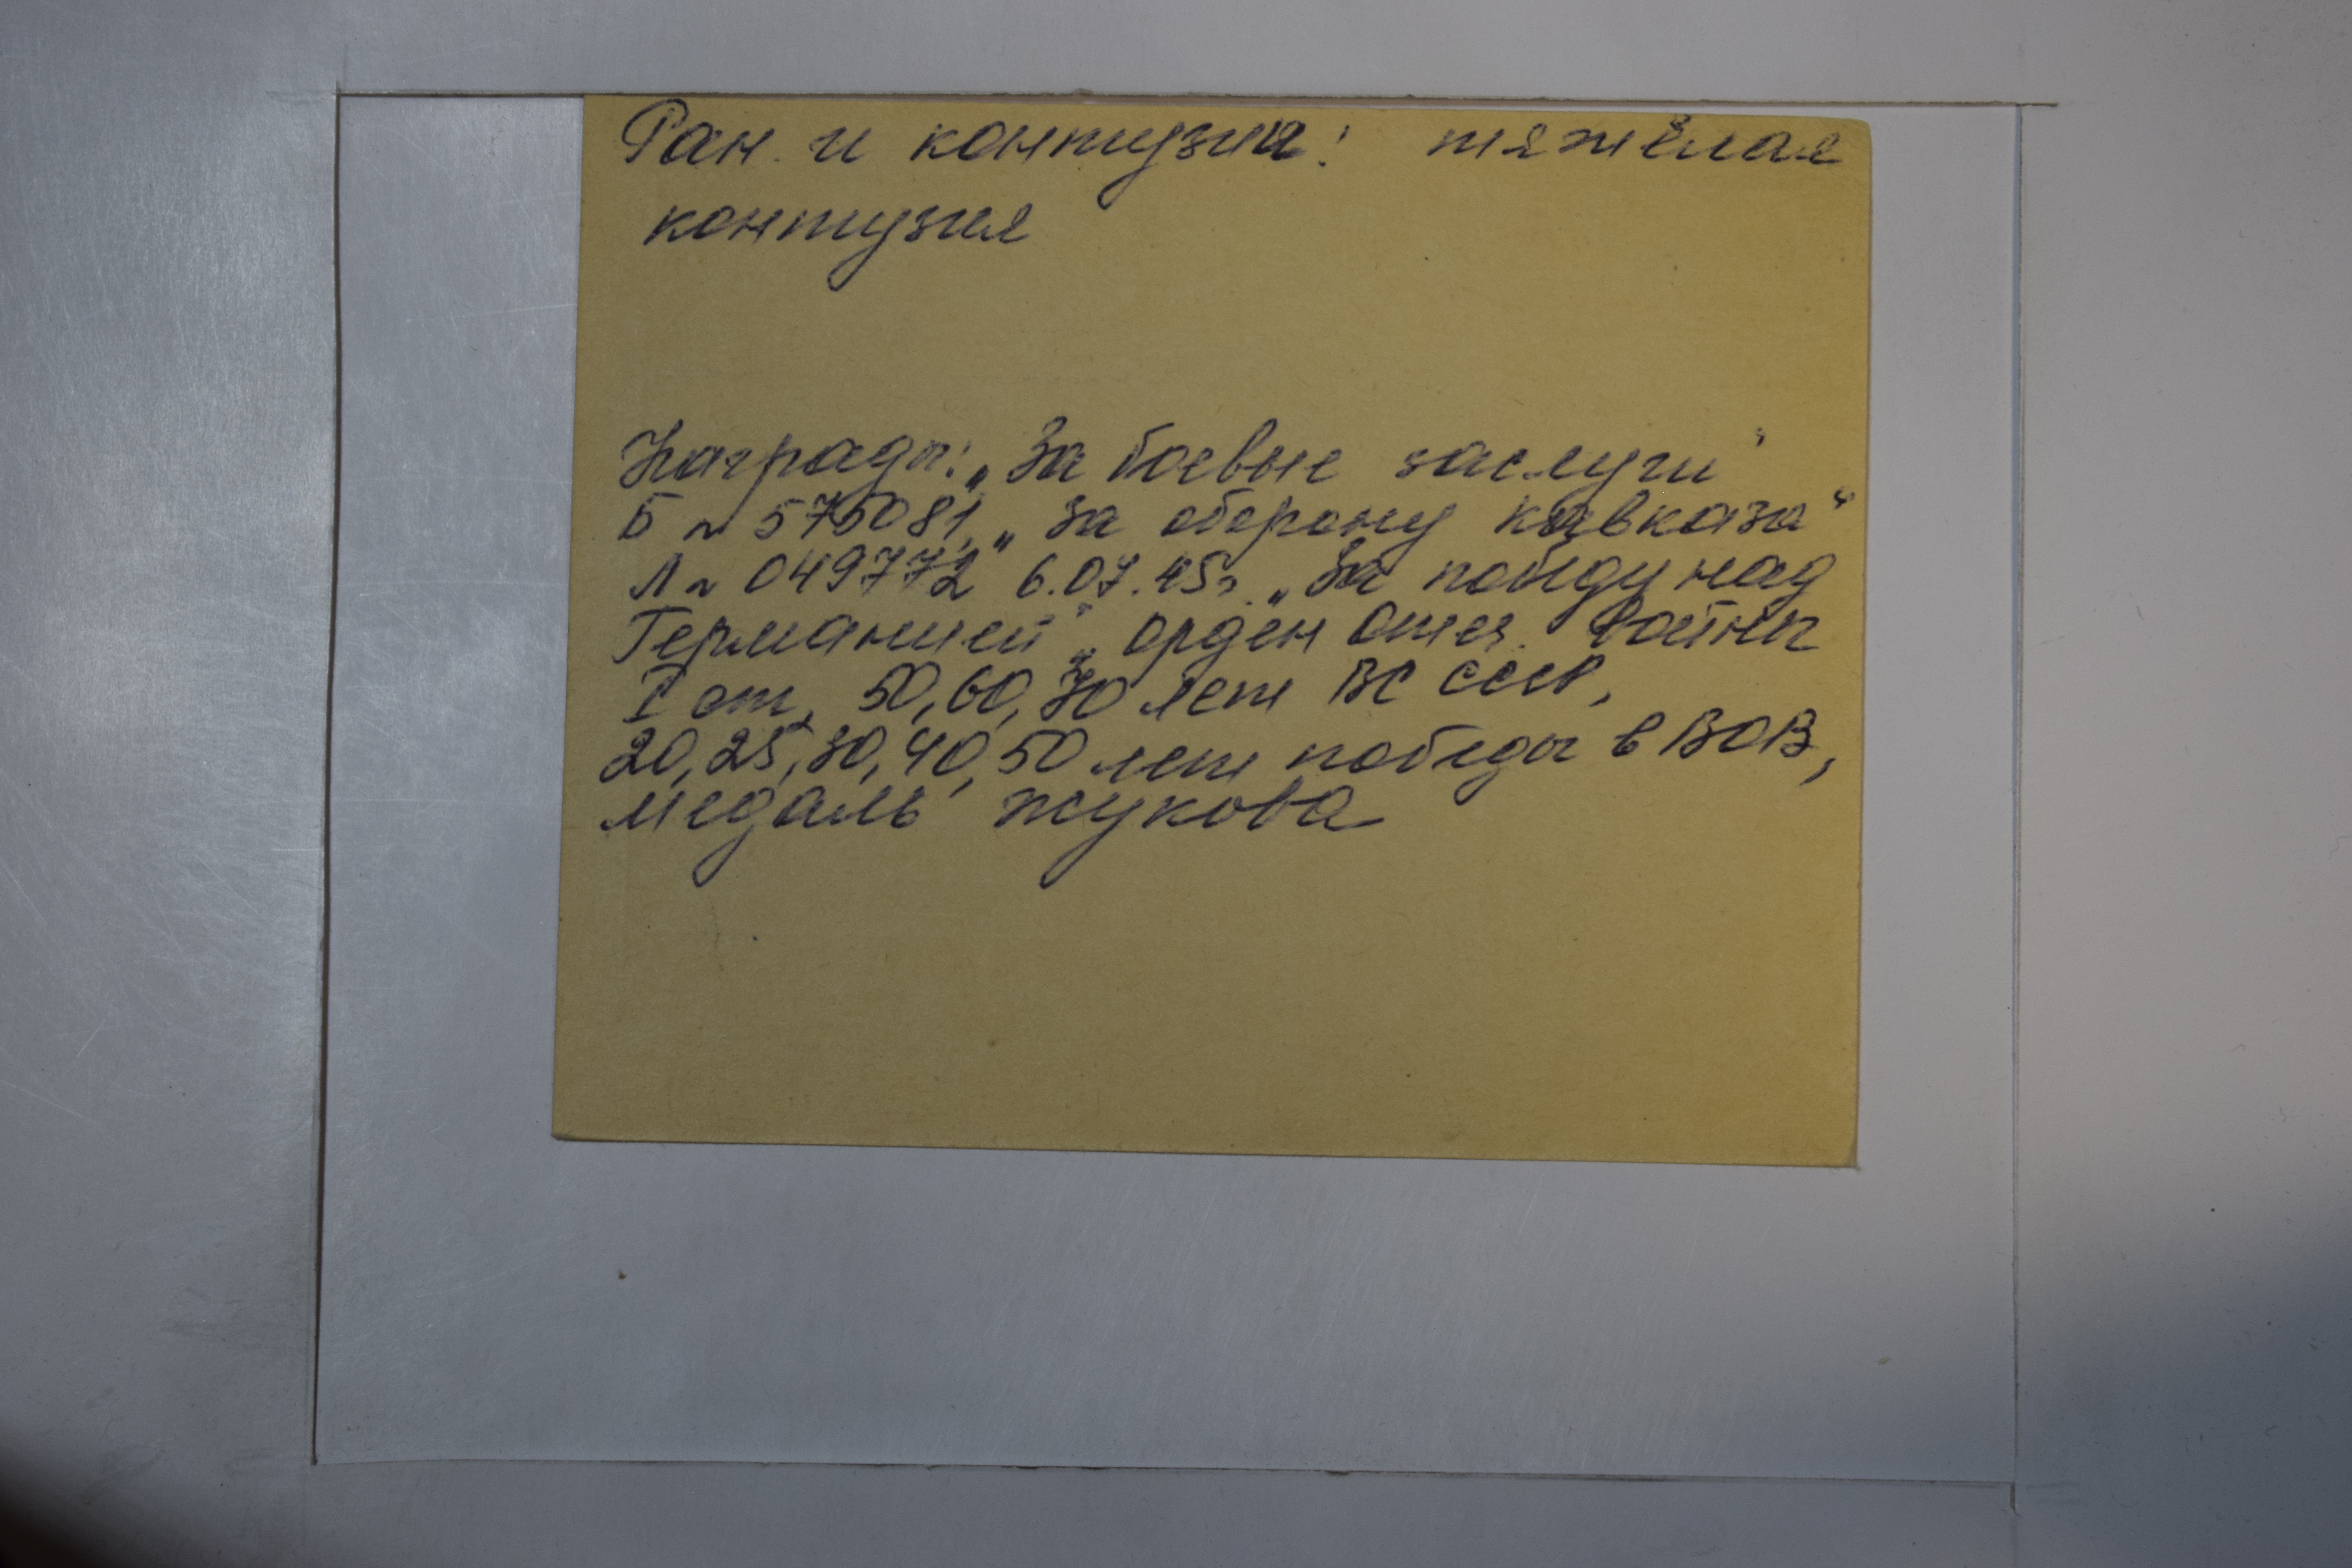 Ран. и контузии: тяжёлая
контузия
Награды: „За боевые заслуги"
Б № 575081, „За оборону кавказа"
Л № 049772 6.07.45г. „За победу над
Германией", орден Отеч. Войны
I ст, 50, 60, 70 лет ВС СССР,
20, 25, 30, 40, 50 лет победы в ВОВ,
медаль жукова